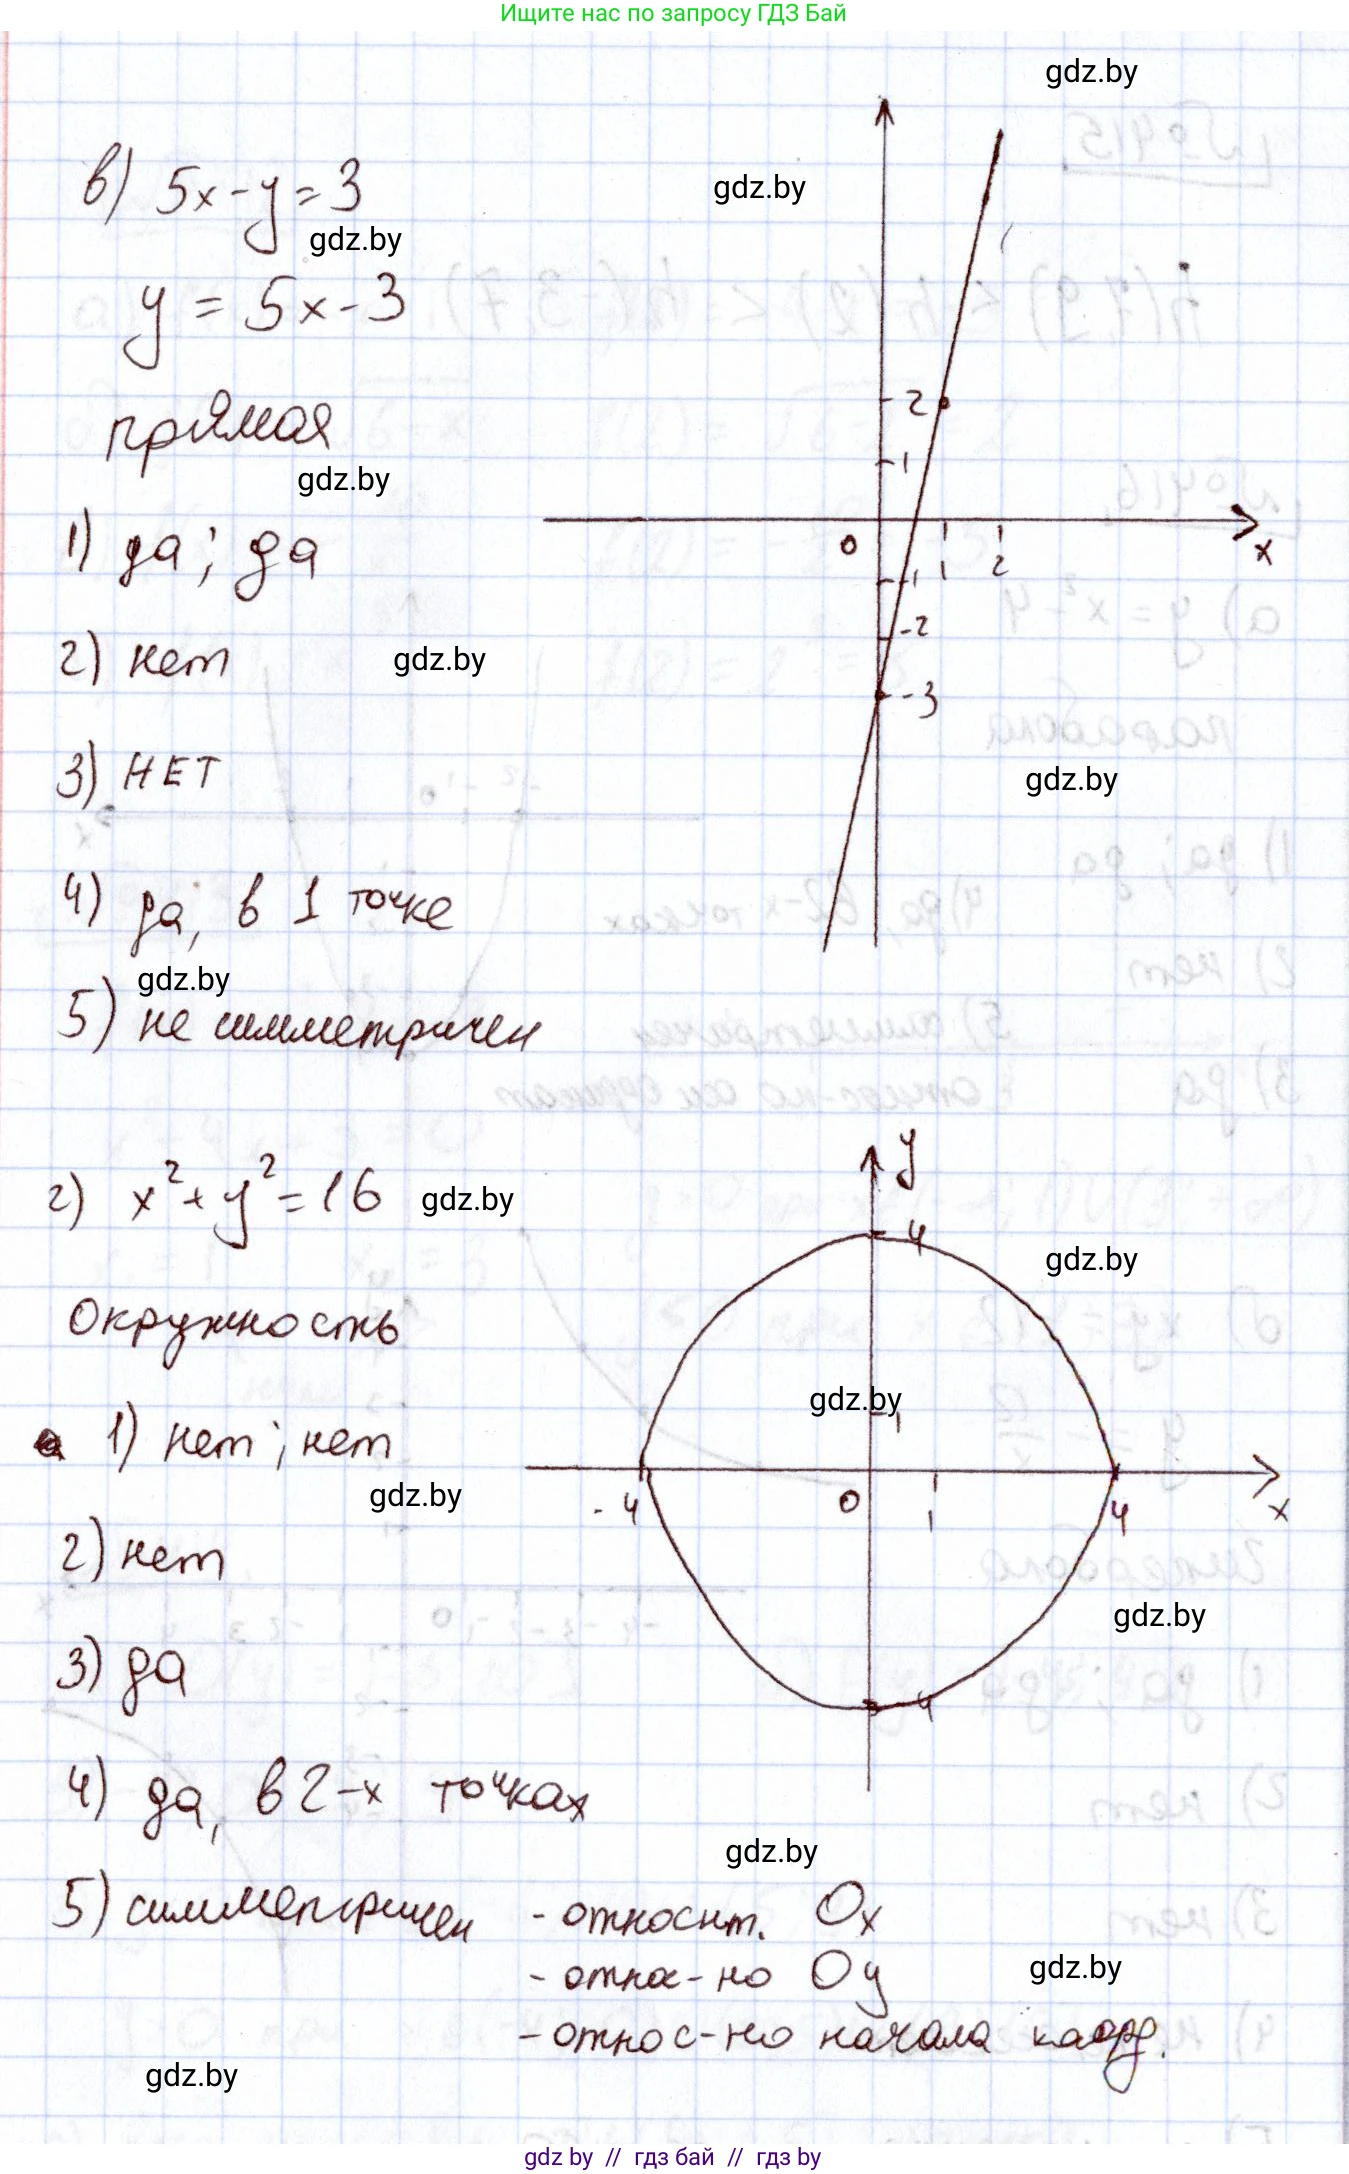 Ищите нас по запросу ГДЗ Бай
gdz.by
в) 5x-y=3
gdz.by
gdz.by
y = 5x-3
прямая
gdz.by
2
1
0
1
2
x
-1
-2
-3
1) да; да
2) нет
gdz.by
3) НЕТ
gdz.by
4) да, в 1 точке
gdz.by
5) не симметричен
г) x²+y²=16
gdz.by
y
4
gdz.by
Окружность
gdz.by
1
1) нет; нет
gdz.by
-4
0
1
4
x
2) нет
gdz.by
3) да
-4
4) да, в 2-х точках
gdz.by
5) симметричен - относит. Ox
- относ-но Oy
gdz.by
- относ-но начала коорд.
gdz.by
gdz by // гдз бай // гдз by